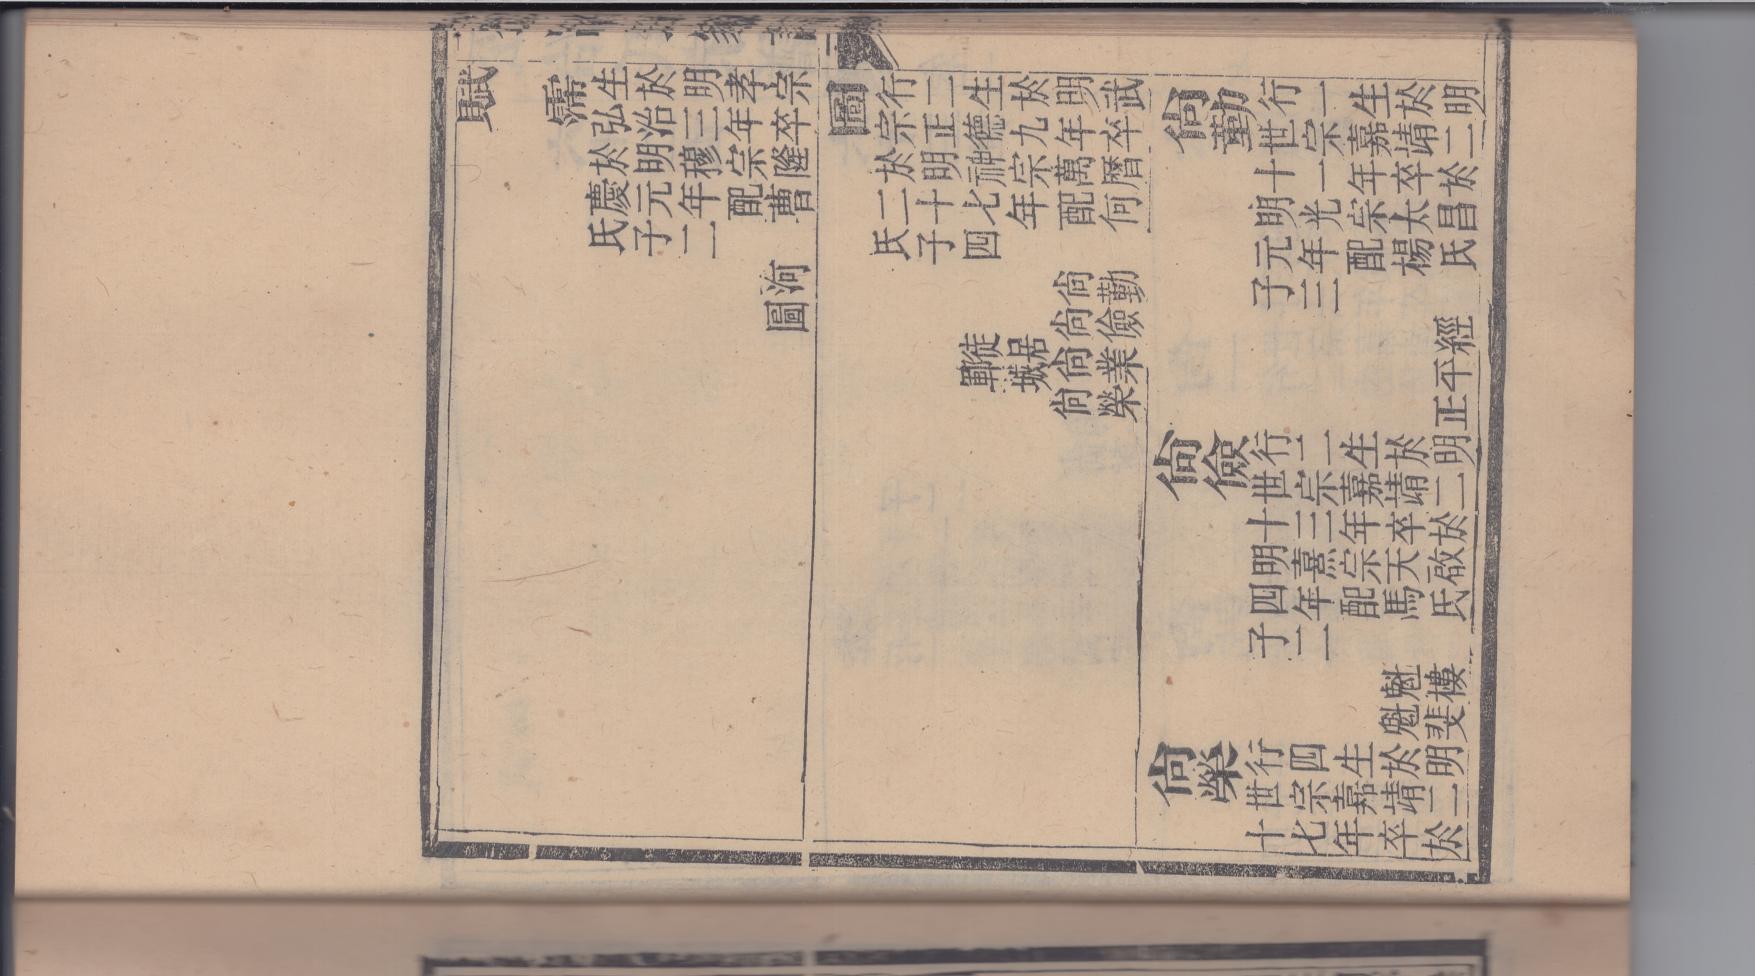 賦
濡
生於明孝宗
弘治三年卒
於明穆宗隆
慶元年配曹
氏子二
圖
圖
行二生於明武
宗正德九年卒
於明神宗萬曆
二十七年配何
氏子四
尚勤
尚儉
徙居尚業
鄲城尚榮
尚勤
行一生於明
世宗嘉靖二
十一年卒於
明光宗太昌
元年配楊氏
子三
經
平
正
尚儉
行二生於明
世宗嘉靖二
十三年卒於
明熹宗天啟
四年配馬氏
子二
魁樓
魁斐
尚榮
行四生於明
世宗嘉靖二
十七年卒於